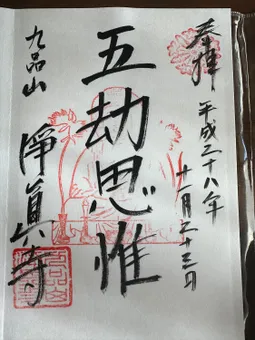 奉拝
平成二十八年
十一月二十三日
五劫思惟
九品山
淨眞寺